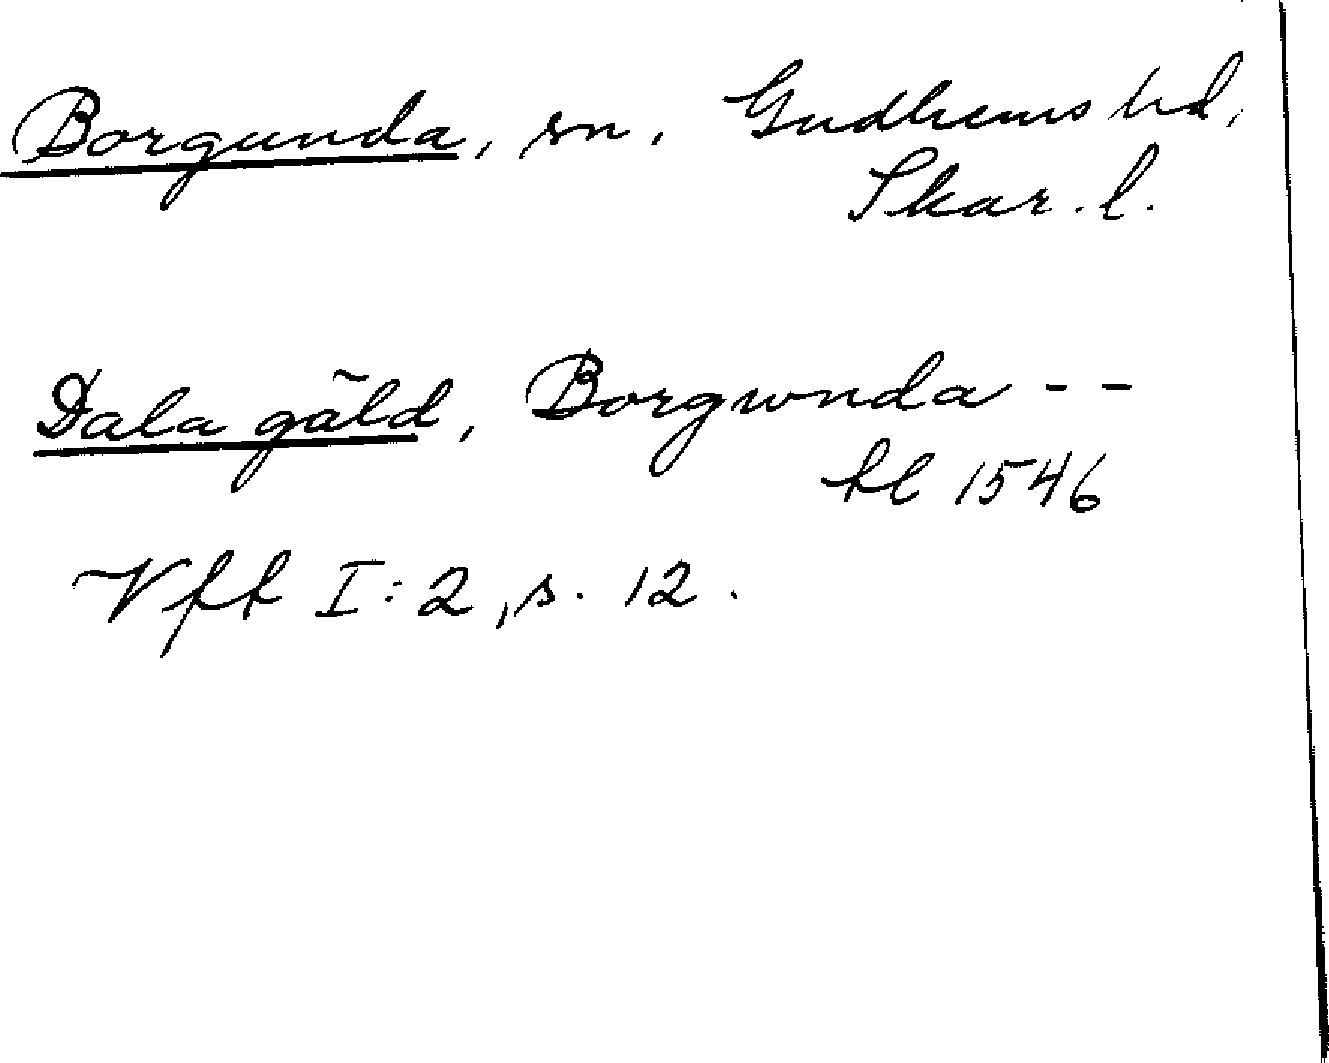 Borgunda, sn, Gudhems hd,
Skar. l.
Dala gäld, Borgwnda - -
kl 1546
Vff I: 2, s. 12.